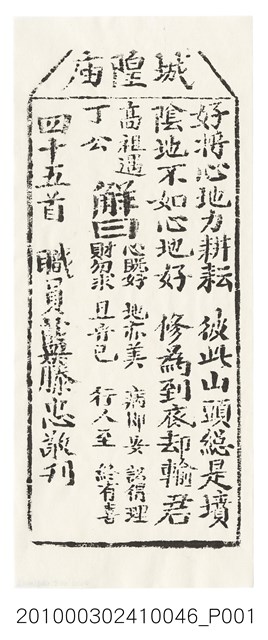 城隍庙
好將心地力耕耘 彼此山頭總是墳
陰地不如心地好 修為到底却輸君
高祖遇丁公
解曰
心既好 地亦美 病即安 訟得理
財勿求 且音已 行人至 終有喜
四十五首 職員 敬刊
201000302410046_P001